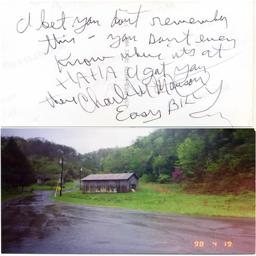 I bet you don't remember
this - you don't even
know where it's at
+ AHA I got you
then Charles Manson
Easy
98 4 19